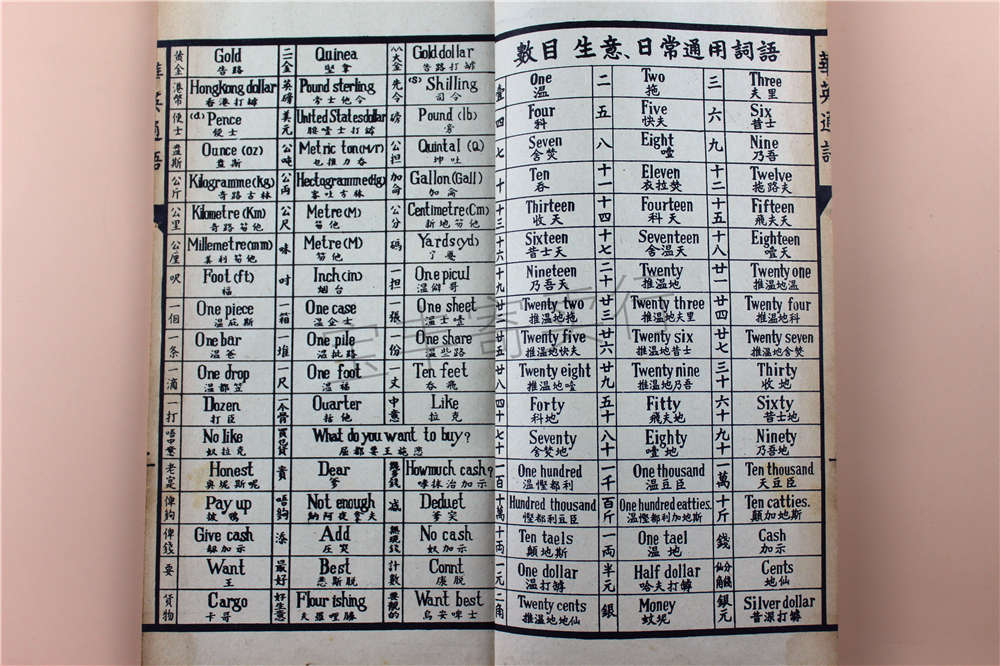 華英通語
黃金 Gold 二金 Quinea 大金 Gold dollar
告路 堅拿 告路打罅
港幣 Hongkong dollar 英磅 Pound sterling 先令 (S) Shilling
香港打罅 旁士他令 司令
便士 (d) Pence 美元 United States dollar 磅 Pound (lb)
便士 旁
盎斯 Ounce (oz) 公吨 Metric ton (MT) 公担 Quintal (Q)
盎斯 也推力吞 坤吐
公斤 Kilogramme (Kg) 公両 Hectogramme (Hg) 加侖 Gallon (Gall)
奇路古林 客吐古林 加侖
公里 Kilometre (Km) 公尺 Metre (M) 公分 Centimetre (Cm)
奇路笏他 笏他 新地笏他
公厘 Millemetre (mm) 咪 Metre (M) 碼 Yards (yd)
美利笏他 笏他
呎 Foot (ft) 吋 Inch (in) 一担 One picul
福 烟台 温僻哥
一個 One piece 一箱 One case 一張 One sheet
温庇斯 温企士 温士嗑
一条 One bar 一堆 One pile 一份 One share
温爸 温批路 温些路
一滴 One drop 一尺 One foot 一丈 Ten feet
温都笠 温福 吞飛
一打 Dozen Quarter 中意 Like
打臣 拉克
唔中意 No like 買乜貨 What do you want to buy?
奴拉克 屈都要王施悲
老寔 Honest 貴 Dear 幾多錢 How much cash?
奧坭斯呢 爹 哮抹治加示
俾鈎 Pay up 唔鈎 Not enough 减 Deduet
披鴨 納阿夜拿夫 爹突
俾錢 Give cash 添 Add 無現錢 No cash
圧突 奴加示
要 Want 最好 Best 計數 Connt
王 悉斯脱 康脱
貨物 Cargo 好生意 Flourishing 要靚的 Want best
卡哥 夫羅哩勝 烏安啤士
數目 生意、日常通用詞語
壹 One 二 Two 三 Three
温 拖 夫里
四 Four 五 Five 六 Six
科 快夫 昔士
七 Seven 八 Eight 九 Nine
舍焚 嗑 乃吾
十 Ten 十一 Eleven 十二 Twelve
吞 衣拉焚 拖路夫
十三 Thirteen 十四 Fourteen 十五 Fifteen
收天 科天 飛夫天
十六 Sixteen 十七 Seventeen 十八 Eighteen
昔士天 舍温天 嗑天
十九 Nineteen 二十 Twenty 廿一 Twenty one
乃吾天 推温地 推温地温
廿二 Twenty two 廿三 Twenty three 廿四 Twenty four
推温地拖 推温地夫里 推温地科
廿五 Twenty five 廿六 Twenty six 廿七 Twenty seven
推温地快夫 推温地昔士 推温地舍焚
廿八 Twenty eight 廿九 Twenty nine 三十 Thirty
推温地嗑 推温地乃吾 收地
四十 Forty 五十 Fitty 六十 Sixty
科地 飛夫地 昔士地
七十 Seventy 八十 Eighty 九十 Ninety
舍焚地 嗑地 乃吾地
一百 One hundred 一千 One thousand 一萬 Ten thousand
温慳都利 温豆臣 天豆臣
十萬 Hundred thousand 百斤 One hundred catties. 十斤 Ten catties.
慳都利豆臣 温慳都利加地斯 顛加地斯
十両 Ten taels 一両 One tael 錢 Cash
顛地斯 温地 加示
一元 One dollar 半元 Half dollar 分角仙錢 Cents
温打罅 哈夫打罅 地仙
二角 Twenty cents 銀 Money 銀元 Silver dollar
推温地地仙 蚊坭 昔深打罅
華英通語